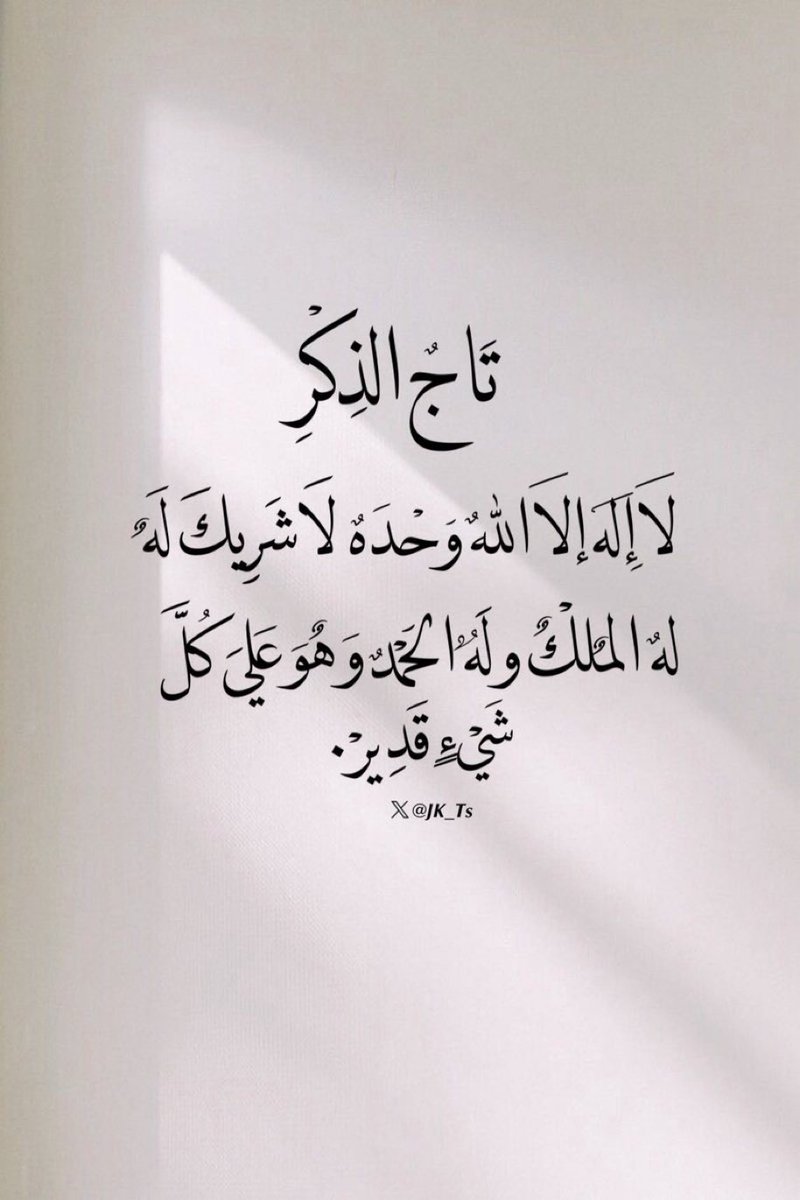 تَاجُ الذِكْرِ
لَا إِلَهَ إلَا اللهُ وَحْدَهُ لَا شَرِيكَ لَهُ
لهُ المُلْكُ ولَهُ الحَمْدُ وَهُوَ عَلَيَ كُلَّ
شَيْءٍ قَدِيرْ.
𝕏 @JK_Ts